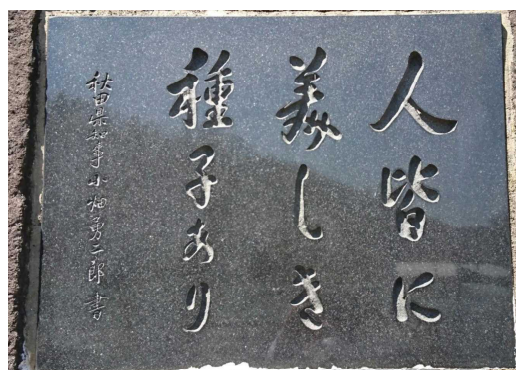 人皆に
美しき
種子あり
秋田県知事 小畑勇二郎 書